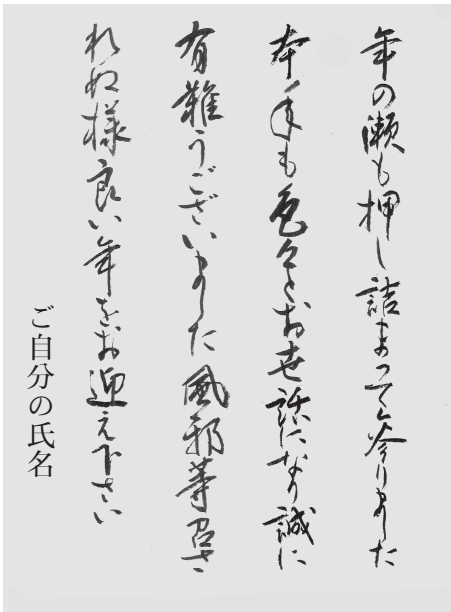 年の瀬も押し詰まって参りました
本年も色々とお世話になり誠に
有難うございました風邪等召さ
れぬ様良い年をお迎え下さい
ご自分の氏名